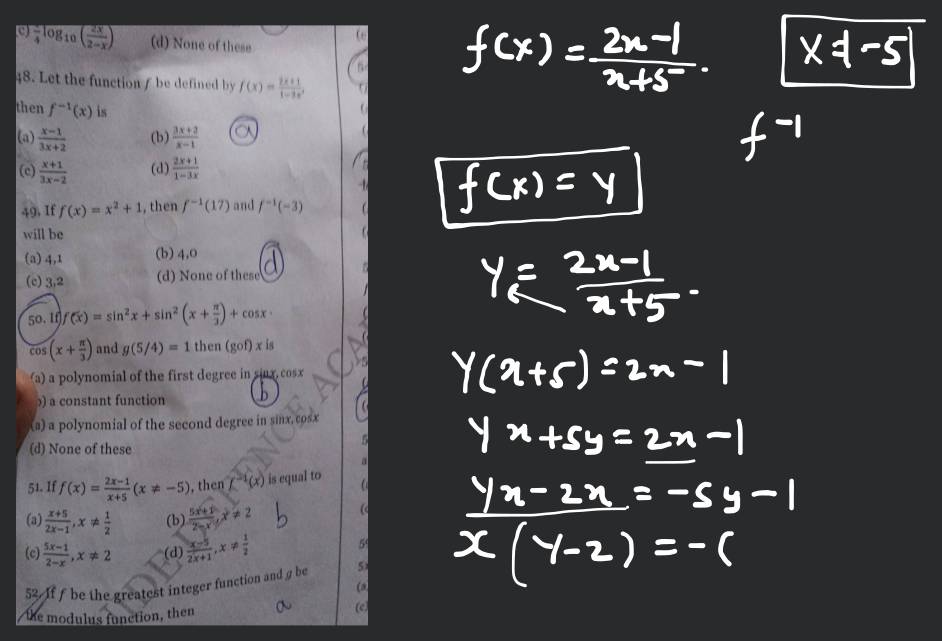 c) log₁₀ (2x/2−x) (d) None of these
48. Let the function f be defined by f(x) = 2x+1/1−3x,
then f⁻¹(x) is
(a) x−1/3x+2 (b) 3x+2/x−1 (a)
(c) x+1/3x−2 (d) 2x+1/1−3x
49. If f(x) = x² + 1, then f⁻¹(17) and f⁻¹(−3)
will be
(a) 4,1 (b) 4,0
(c) 3,2 (d) None of these (d)
50. If f(x) = sin²x + sin²(x + π/3) + cosx·
cos(x + π/3) and g(5/4) = 1 then (gof) x is
(a) a polynomial of the first degree in sinx, cosx
b) a constant function (b)
(a) a polynomial of the second degree in sinx, cosx
(d) None of these
51. If f(x) = 2x−1/x+5 (x ≠ −5), then f⁻¹(x) is equal to
(a) x+5/2x−1, x ≠ 1/2 (b) 5x+1/2−x, x ≠ 2 b
(c) 5x−1/2−x, x ≠ 2 (d) x−5/2x+1, x ≠ 1/2
52. If f be the greatest integer function and g be
the modulus function, then a
f(x) = 2x−1/x+5. x ≠ −5
f⁻¹
f(x) = y
y = 2x−1/x+5.
y(x+5) = 2x−1
yx+5y = 2x−1
yx−2x = −5y−1
x(y−2) = −(